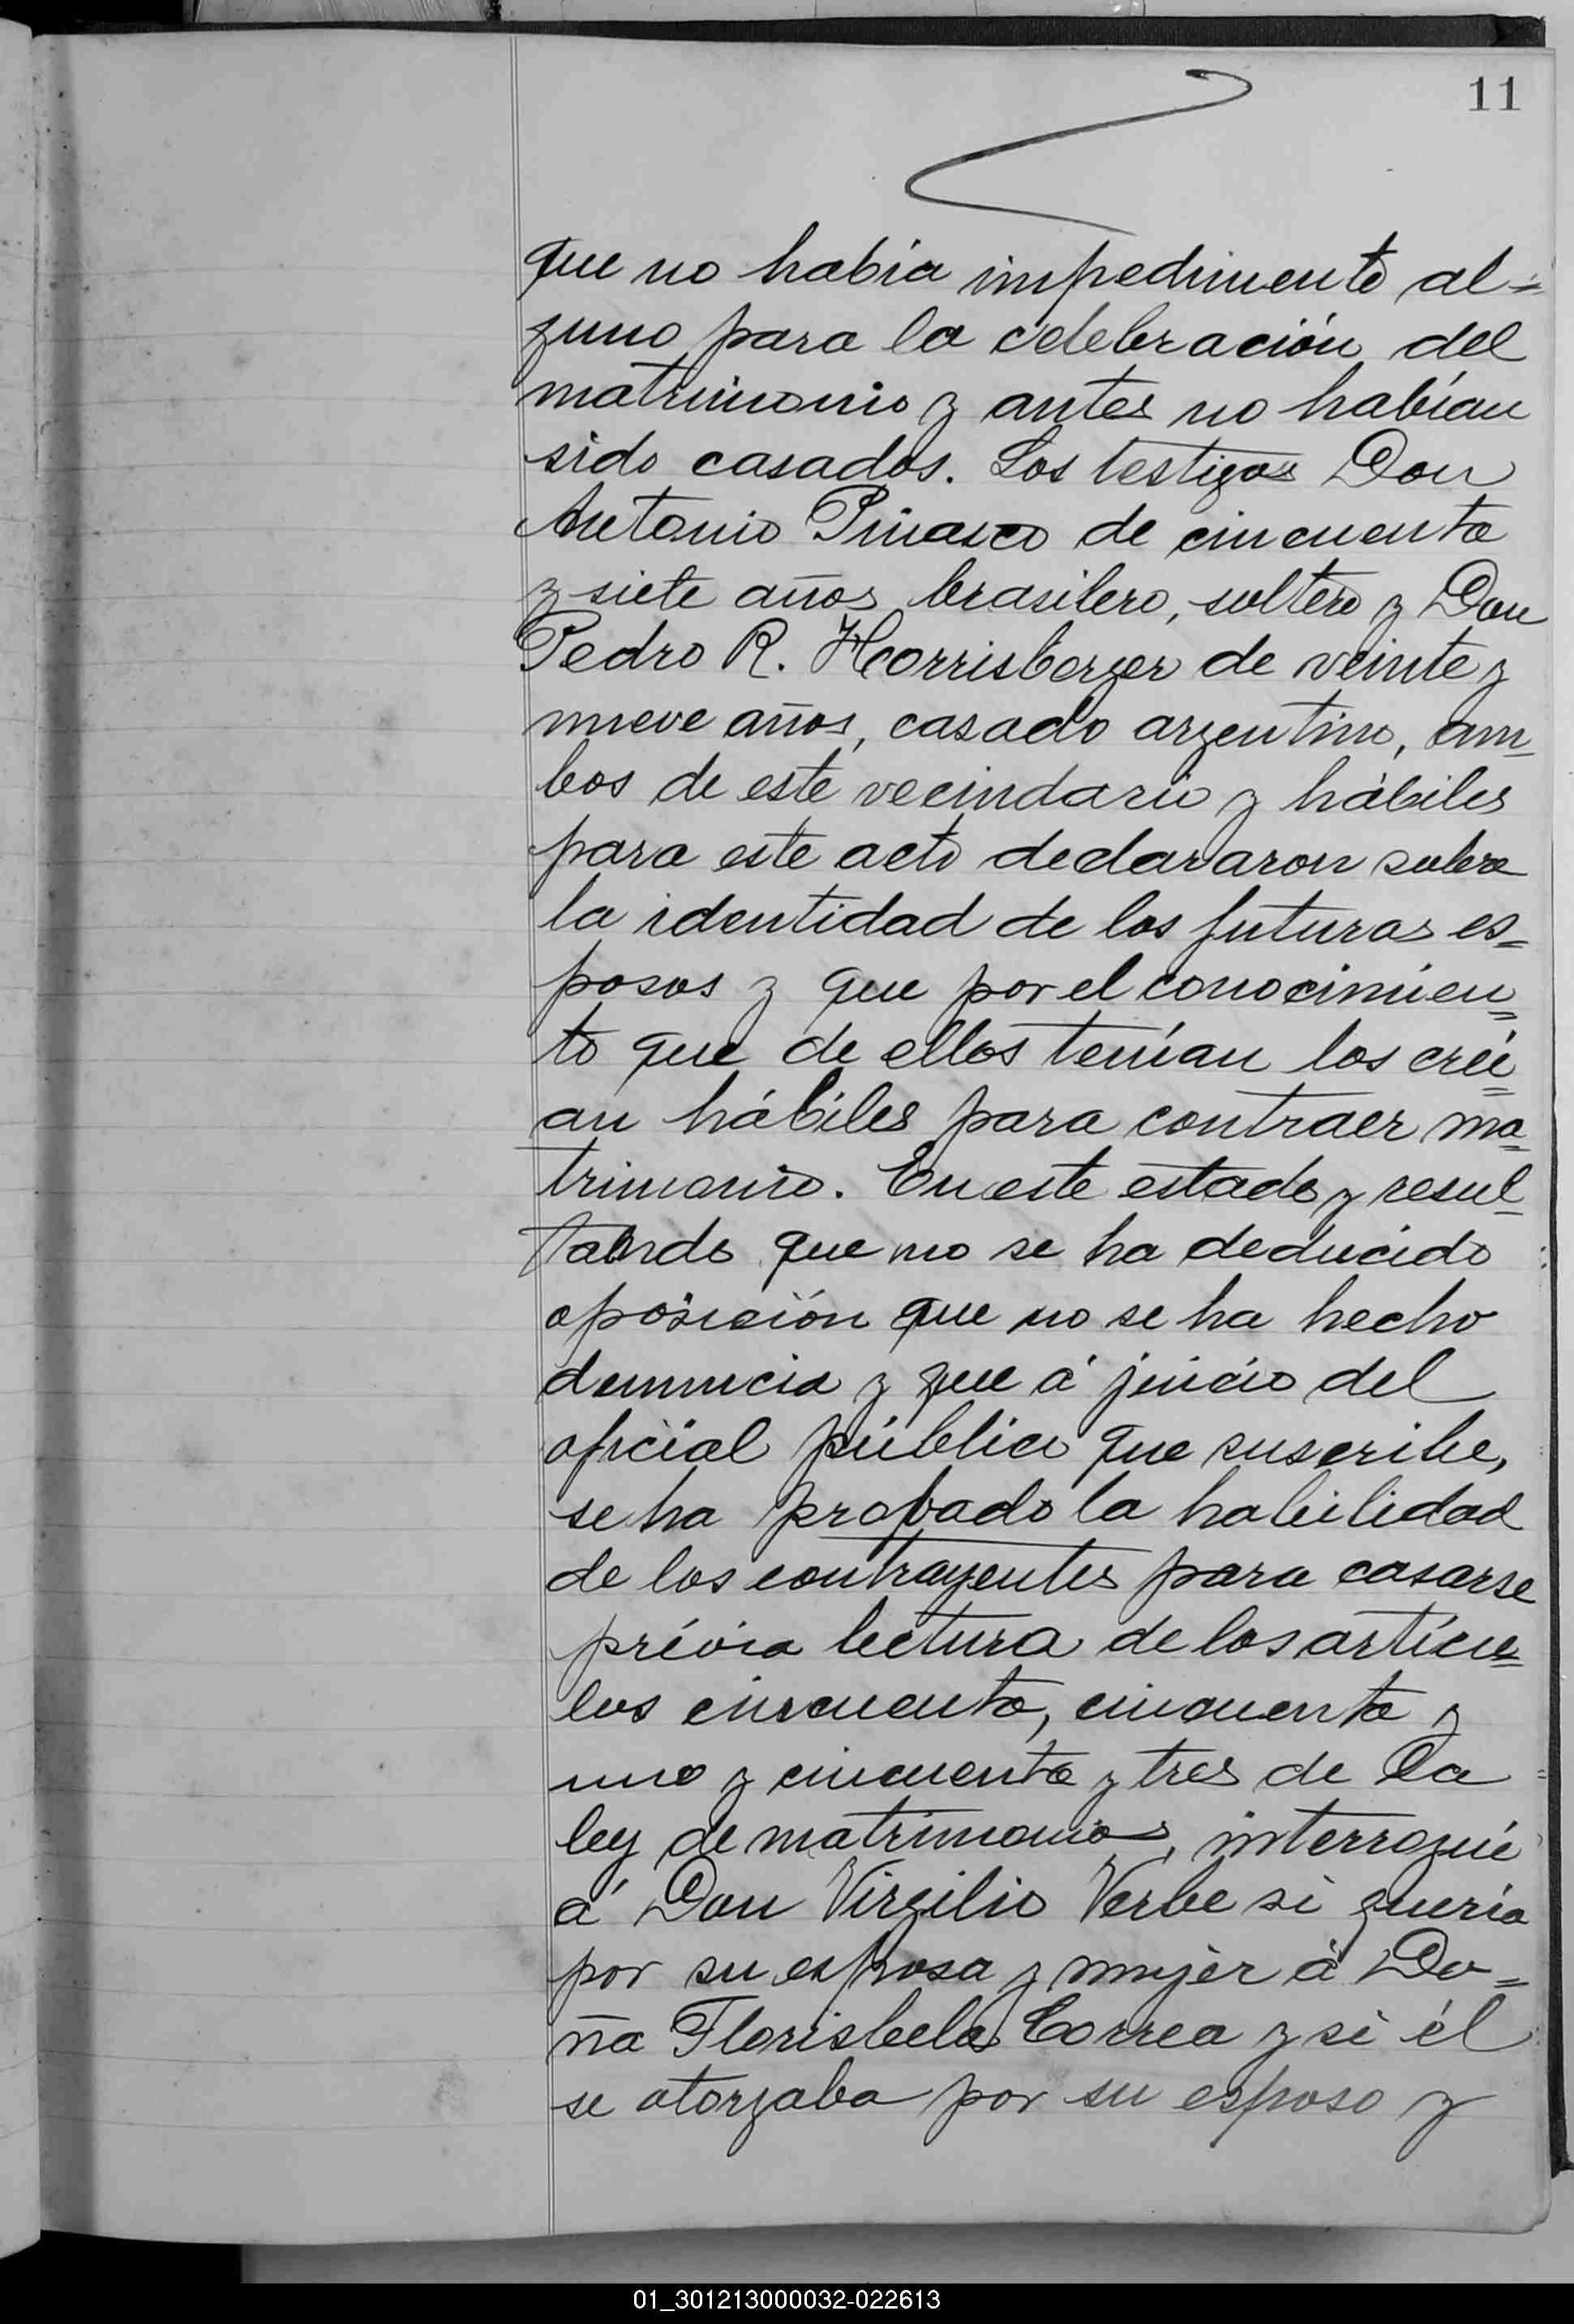 11
que no había impedimento al=
guno para la celebración del
matrimonio y antes no habían
sido casados. Los testigos Don
Antonio Pinasco de cincuenta
y siete años, brasilero, soltero y Don
Pedro R. Horrisberger de veinte y
nueve años, casado argentino, am_
bos de este vecindario y hábiles
para este acto declararon sobre
la identidad de los futuros es=
posos y que por el conocimien=
to que de ellos tenían los creí=
an hábiles para contraer ma=
trimonio. En este estado y resul_
tando que no se ha deducido
oposición que no se ha hecho
denuncia y que á juicio del
oficial público que suscribe,
se ha probado la habilidad
de los contrayentes para casarse
prévia lectura de los artícu=
los cincuenta, cincuenta y
uno y cincuenta y tres de la
ley de matrimonios, interrogué
á Don Virgilio Verbe si quería
por su esposa y mujer á Do=
ña Florisbela Correa y si él
se otorgaba por su esposo y
01_301213000032-022613